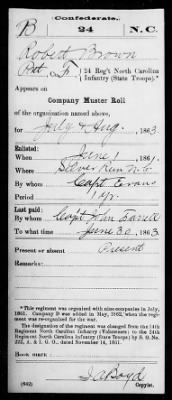 Confederate.
B 24 N.C.
Robert Brown
Pvt, Co. F, 24 Reg't North Carolina
Infantry (State Troops).*
Appears on
Company Muster Roll
of the organization named above,
for July & Aug., 1863.
Enlisted:
When June 1, 1861.
Where
By whom Capt Evans
Period 1 yr.
Last paid:
By whom Capt John
To what time June 30, 1863.
Present or absent Present
Remarks:
*This regiment was organized with nine companies in July,
1861. Company B was added in May, 1862, when the regi-
ment was reorganized.
The designation of the regiment was changed from the 14th
Regiment North Carolina Infantry (Volunteers) to the 24th
Regiment North Carolina Infantry (State Troops) by S. O. No.
222, A. & I. G. O., dated November 14, 1861.
Book mark:
J A Boyd
(642) Copyist.